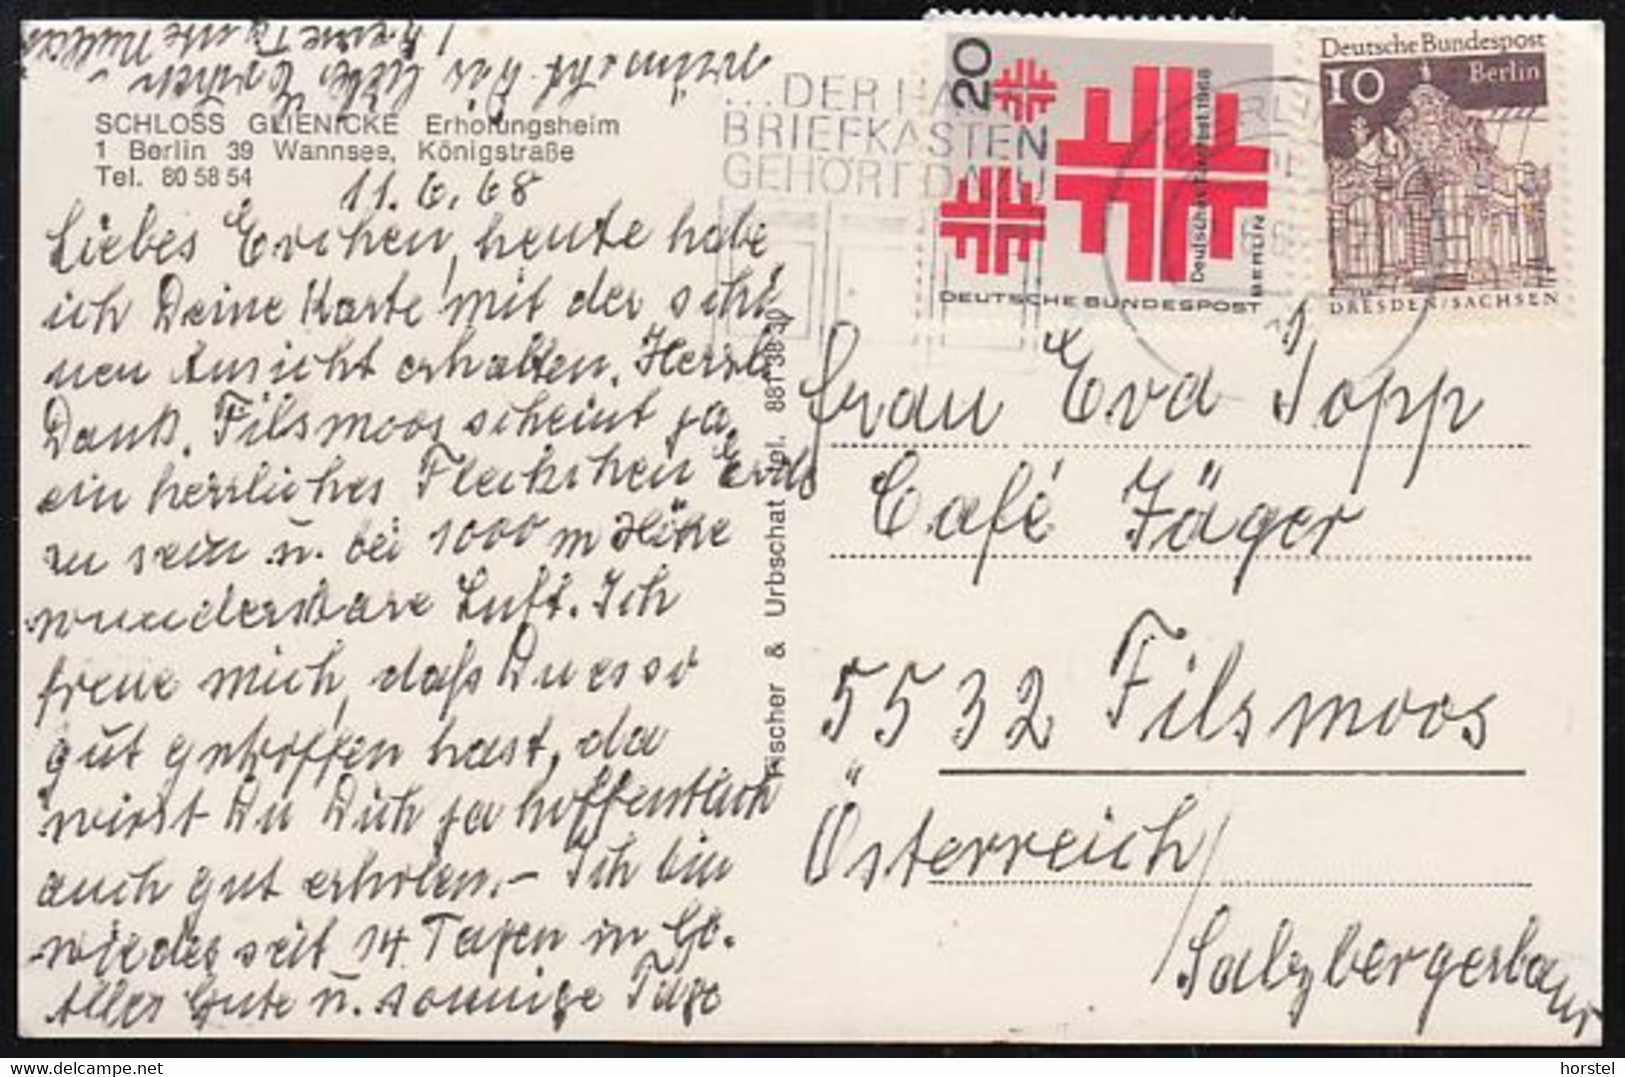 SCHLOSS GLIENICKE Erholungsheim
1 Berlin 39 Wannsee, Königstraße
Tel. 80 58 54
11.6.68
Liebes Evchen, heute habe
ich Deine Karte mit der schö
nen Ansicht erhalten. Herzl.
Dank. Filsmoos scheint ja
ein herrliches Fleckchen Erde
zu sein u. bei 1000 m Höhe
wunderbare Luft. Ich
freue mich, daß Du es so
gut getroffen hast, da
wirst Du Dich ja hoffentlich
auch gut erholen. – Ich bin
wieder seit 14 Tagen in Gl.
Alles Gute u. sonnige Tage
wünscht Dir liebes Evchen
Deine Tante
Fischer & Urbschat Tel. 881 38 30
...DER HA
BRIEFKASTEN
GEHÖRT DAZU
20
Deutsches Turnfest 1968
BERLIN
DEUTSCHE BUNDESPOST
Deutsche Bundespost
10 Berlin
DRESDEN/SACHSEN
Frau Eva Topp
Café Jäger
5532 Filsmoos
Österreich/
Salzbergerland
horstel